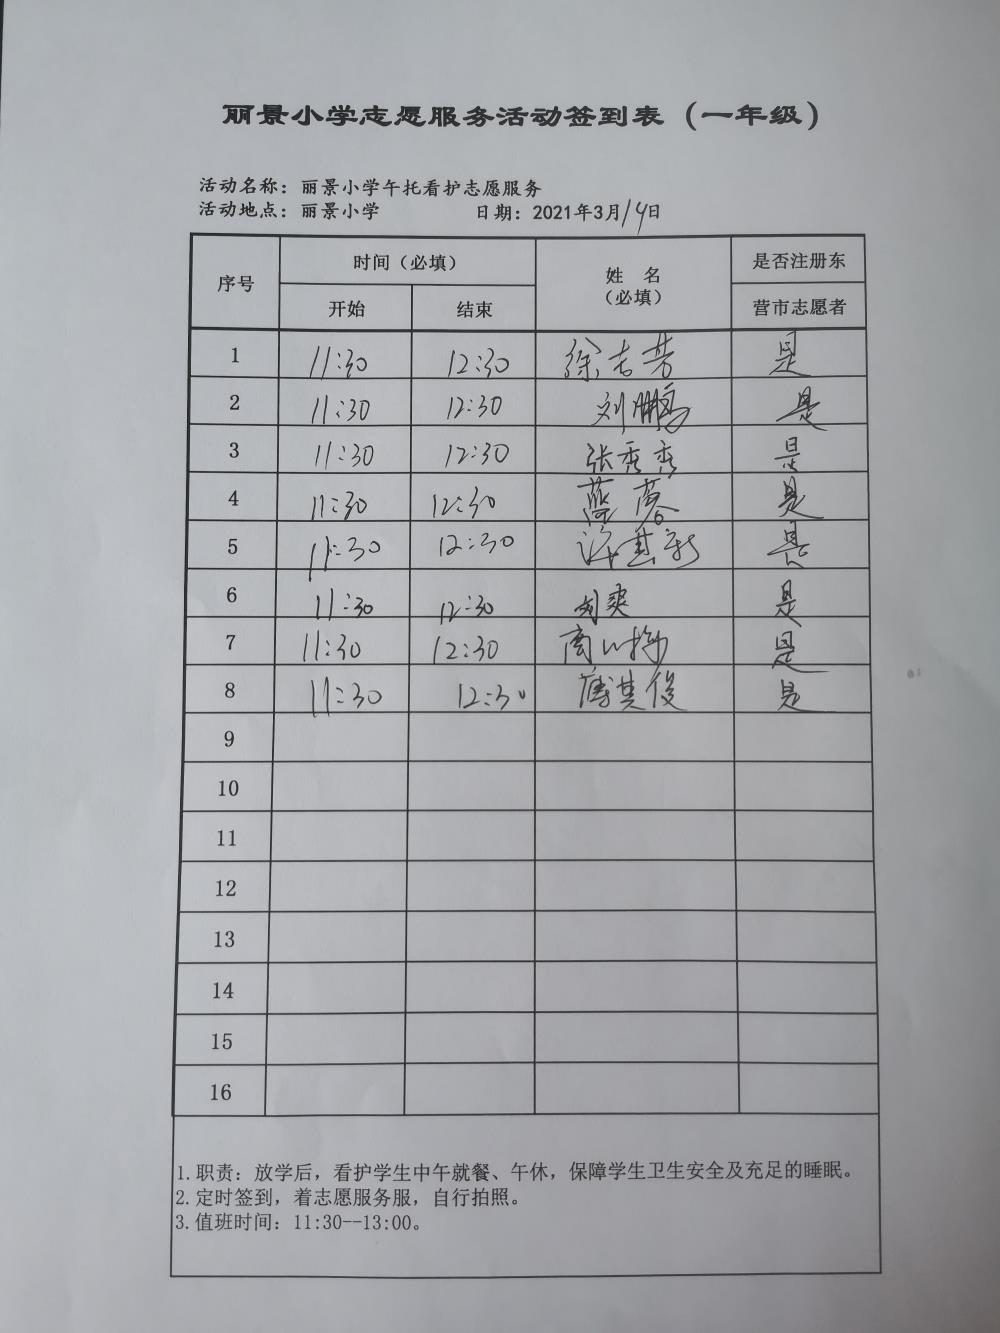 丽景小学志愿服务活动签到表（一年级）
活动名称：丽景小学午托看护志愿服务
活动地点：丽景小学 日期：2021年3月14日
序号 时间（必填） 姓 名 是否注册东
开始 结束 （必填） 营市志愿者
1 11:30 12:30 徐志芳 是
2 11:30 12:30 刘鹏 是
3 11:30 12:30 张秀秀 是
4 11:30 12:30 是
5 11:30 12:30 是
6 11:30 12:30 刘爽 是
7 11:30 12:30 是
8 11:30 12:30 其俊 是
9
10
11
12
13
14
15
16
1.职责：放学后，看护学生中午就餐、午休，保障学生卫生安全及充足的睡眠。
2.定时签到，着志愿服务服，自行拍照。
3.值班时间：11:30--13:00。